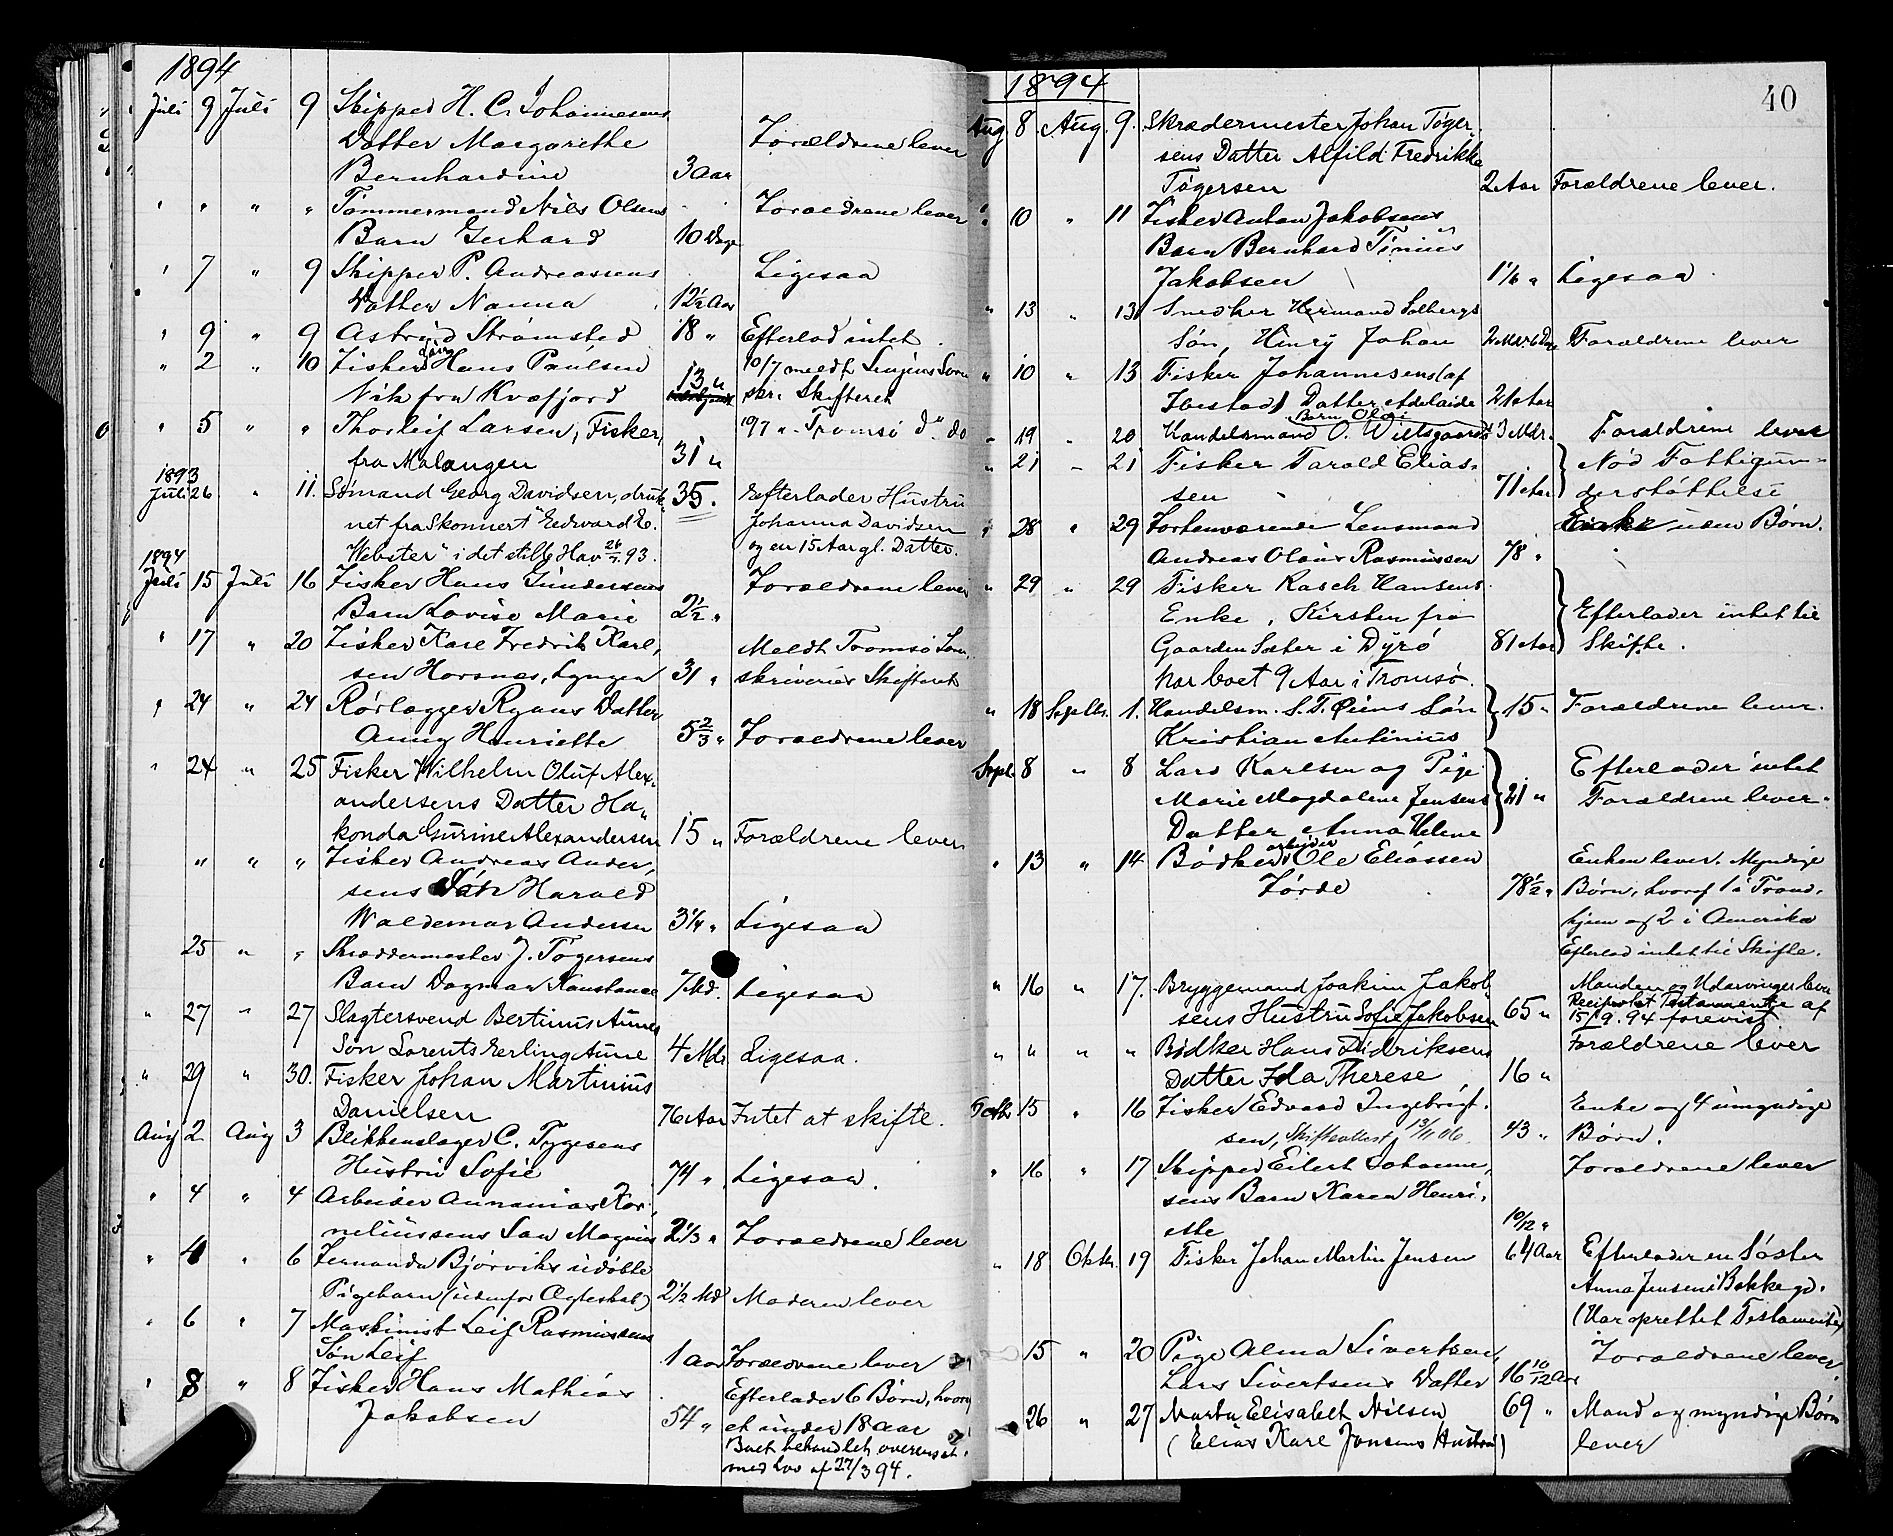 1894
Juli 9 Juli 9 Skipper H. C. Johannesens
Datter Margarethe Forældrene lever
Bernhardine 3 Aar
" " " " Tømmermand Nils Olsens Forældrene lever
Barn Gerhard 10 Dage
" 7 " 9 Skipper P. Andreassens Ligesaa
Datter Nanna 12½ Aar
" 9 " 9 Astrid Strømsted 18 " Efterlod intet
" 2 " 10 Fisker Hans Paulsen 10/7 meldt Senjens Soren
Vik fra Kvæfjord 13 " skr. Skifteret
" 5 " " Thorleif Larsen, Fisker, 19/7 " Tromsö do do
fra Malangen 31 "
1893
Juli 26 " 11. Sömand Georg Davidsen, druk 35. Efterlader Hustru
net fra Skonnert "Edward E. Johanna Davidsen
Webster" i det stille Hav 26/7 93. og en 15 Aar gl. Datter.
1894
Juli 15 Juli 16 Fisker Hans Gundersens Forældrene lever
Barn Lovise Marie 2½ "
" 17 " 20 Fisker Karl Fredrik Karl, Meldt Tromsö Soren,
sen Horsnes, Lyngen 31 " skriveries Skifteret
" 24 " 24 Rörlægger Ryans Datter
Anny Henriette 5 2/3 " Forældrene lever
" 24 " 25 Fisker Wilhelm Oluf Alex,
andersens Datter Ha,
konda Gurine Alexandersen 15 " Forældrene lever
" " " Fisker Andreas Ander,
sens Sön Harald
Waldemar Andersen 3¼ " Ligesaa
25 " " Skræddermester J. Tögersens
Barn Dagmar Konstance 7 Md. Ligesaa
" 27 " 27 Slagtersvend Bertinus Aunes
Sön Lorents Erling Aune 4 Mdr Ligesaa.
" 29 " 30. Fisker Johan Martinius
Danielsen 76 Aar Intet at skifte.
Aug 2 Aug 3 Blikkenslager C. Tygesens
Hustru Sofie 74 " Ligesaa.
" 4 " 4 Arbeider Annanias Kor,
neliussens Sön Magnus 2 1/3 " Forældrene lever
" 4 " 6 Fernanda Björviks udöbte
Pigebarn (udenfor Ægteskab) 2½ Md Moderen lever
" 6 " 7 Maskinist Leif Rasmussens
Sön Leif 1 Aar Forældrene lever
" 8 " 8 Fisker Hans Mathias Efterlader 6 Börn, hvoraf
Jakobsen 54 " et under 18 Aar
Boet behandlet overensst.
med Lov af 27/3 94.
1894
40
Aug 8 Aug. 9. Skrædermester Johan Töger
sens Datter Alfild Fredrikke
Tögersen 2 Aar Forældrene lever.
" 10 " 11 Fisker Anton Jakobsens
Barn Bernhard Tinius
Jakobsen 1 1/6 " Ligesaa
" 13 " 13 Snedker Hermand Solbergs
Sön, Hinry Johan 2 Mdr 6 Dge Forældrene lever
" 10 " 13 Fisker Johannesens (af
Ibestad) Datter Adelaide 21 Aar
" 19 " 20 Handelsmand O. Wiltsgaards Barn Olgi 3 Mdr. Forældrene lever
" 21 " 21 Fisker Tarald Elias, Nöd Fattigun-
sen 71 Aar derstöttelse
" 28 " 29 Forhenværende Lensmand Enke uden Börn.
Andreas Olaus Rasmussen 78 "
" 29 " 29 Fisker Rasch Hansens
Enke, Kirsten fra Efterlader intet til
Gaarden Sæter i Dyrö 81 Aar Skifte.
har boet 9 Aar i Tromsö.
" 18 Septbr. 1. Handelsm. S. T. Öiens Sön 15 " Forældrene lever.
Kristian Antinius
Sept. 8 " 8 Lars Karlsen og Pige Efterlader intet
Marie Magdalene Jensens 21 " Forældrene lever.
Datter Anna Helene
" 13 " 14 Bödkerarbejder Ole Eliassen Enken lever. Myndige
Förde 78½ " Börn, hvoraf 1 i Trond,
hjem og 2 i Amerika
Efterlod intet til Skifte.
" 16 " 17. Bryggemand Joakim Jakob Manden og Udarvinger lever
sens Hustru Sofie Jakobsen 65 " Reciprokt Testamente af
15/9. 94 forevist.
" " " " Bödker Hans Didriksens Forældrene lever
Datter Ida Therese 16 "
15 " 16 Fisker Edvard Ingebrigt. Enke og 4 umyndige
sen, Skifteattest 13/11 06 43 " Börn.
" 16 " 17 Skipper Eilert Johanne, Forældrene lever
sens Barn Karen Henri,
ette 10/12 "
" 18 Oktbr. 19 Fisker Johan Martin Jensen 64 Aar Efterlader en Söster
Anna Jensen i Bakkegd.
(Har oprettet Testamente)
15 " 20 Pige Alma Sivertsen, Forældrene lever
Lars Sivertsens Datter 16 10/12 Aar
26 " 27 Marta Elisabet Nilsen 69 " Mand og myndige Börn
(Elias Karl Jensens Hustru) lever